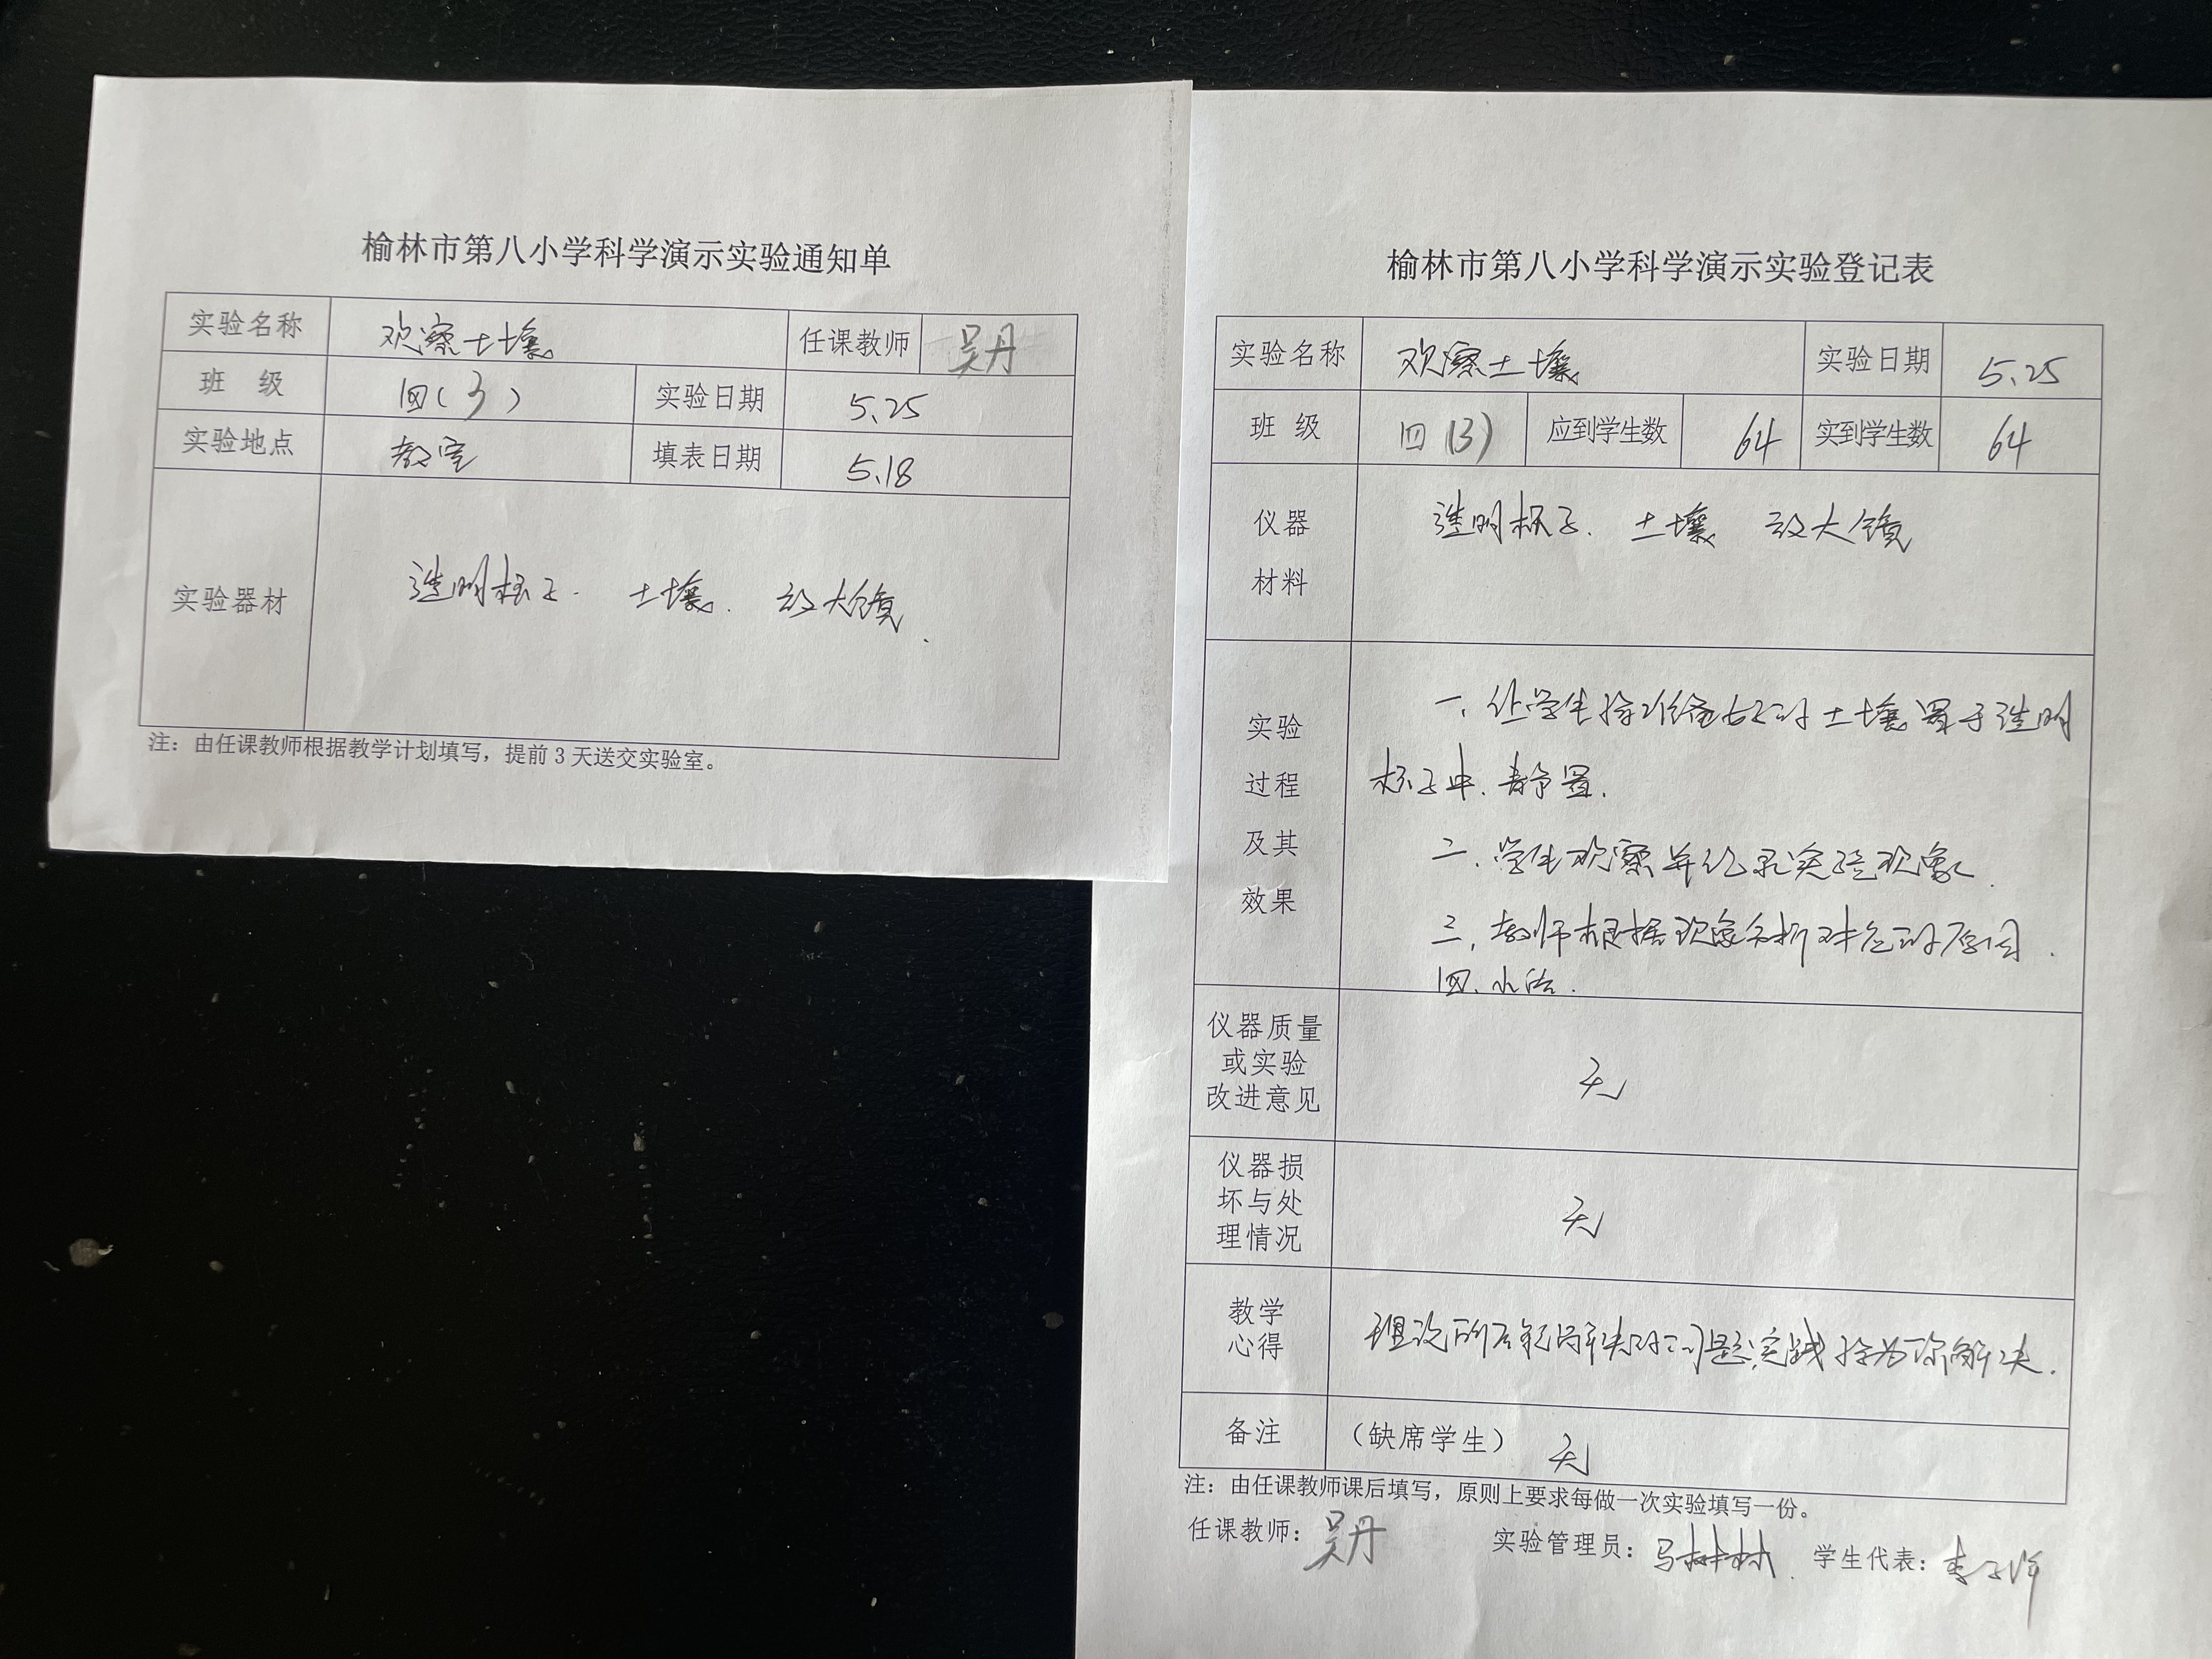 榆林市第八小学科学演示实验通知单
实验名称 观察土壤 任课教师 吴丹
班 级 四(3) 实验日期 5.25
实验地点 教室 填表日期 5.18
实验器材 透明杯子. 土壤. 放大镜.
注：由任课教师根据教学计划填写，提前3天送交实验室。
榆林市第八小学科学演示实验登记表
实验名称 观察土壤 实验日期 5.25
班 级 四(3) 应到学生数 64 实到学生数 64
仪器
材料
透明杯子. 土壤 放大镜
实验
过程
及其
效果
一. 让学生将准备好的土壤置于透明
杯子中. 静置.
二. 学生观察并记录实验现象.
三. 教师根据现象分析对应的原因.
四. 小结.
仪器质量
或实验
改进意见
无
仪器损
坏与处
理情况
无
教学
心得
理论所不能解决的问题, 实践将为你解决.
备注 （缺席学生） 无
注：由任课教师课后填写，原则上要求每做一次实验填写一份。
任课教师：吴丹 实验管理员：马林林 学生代表：李子